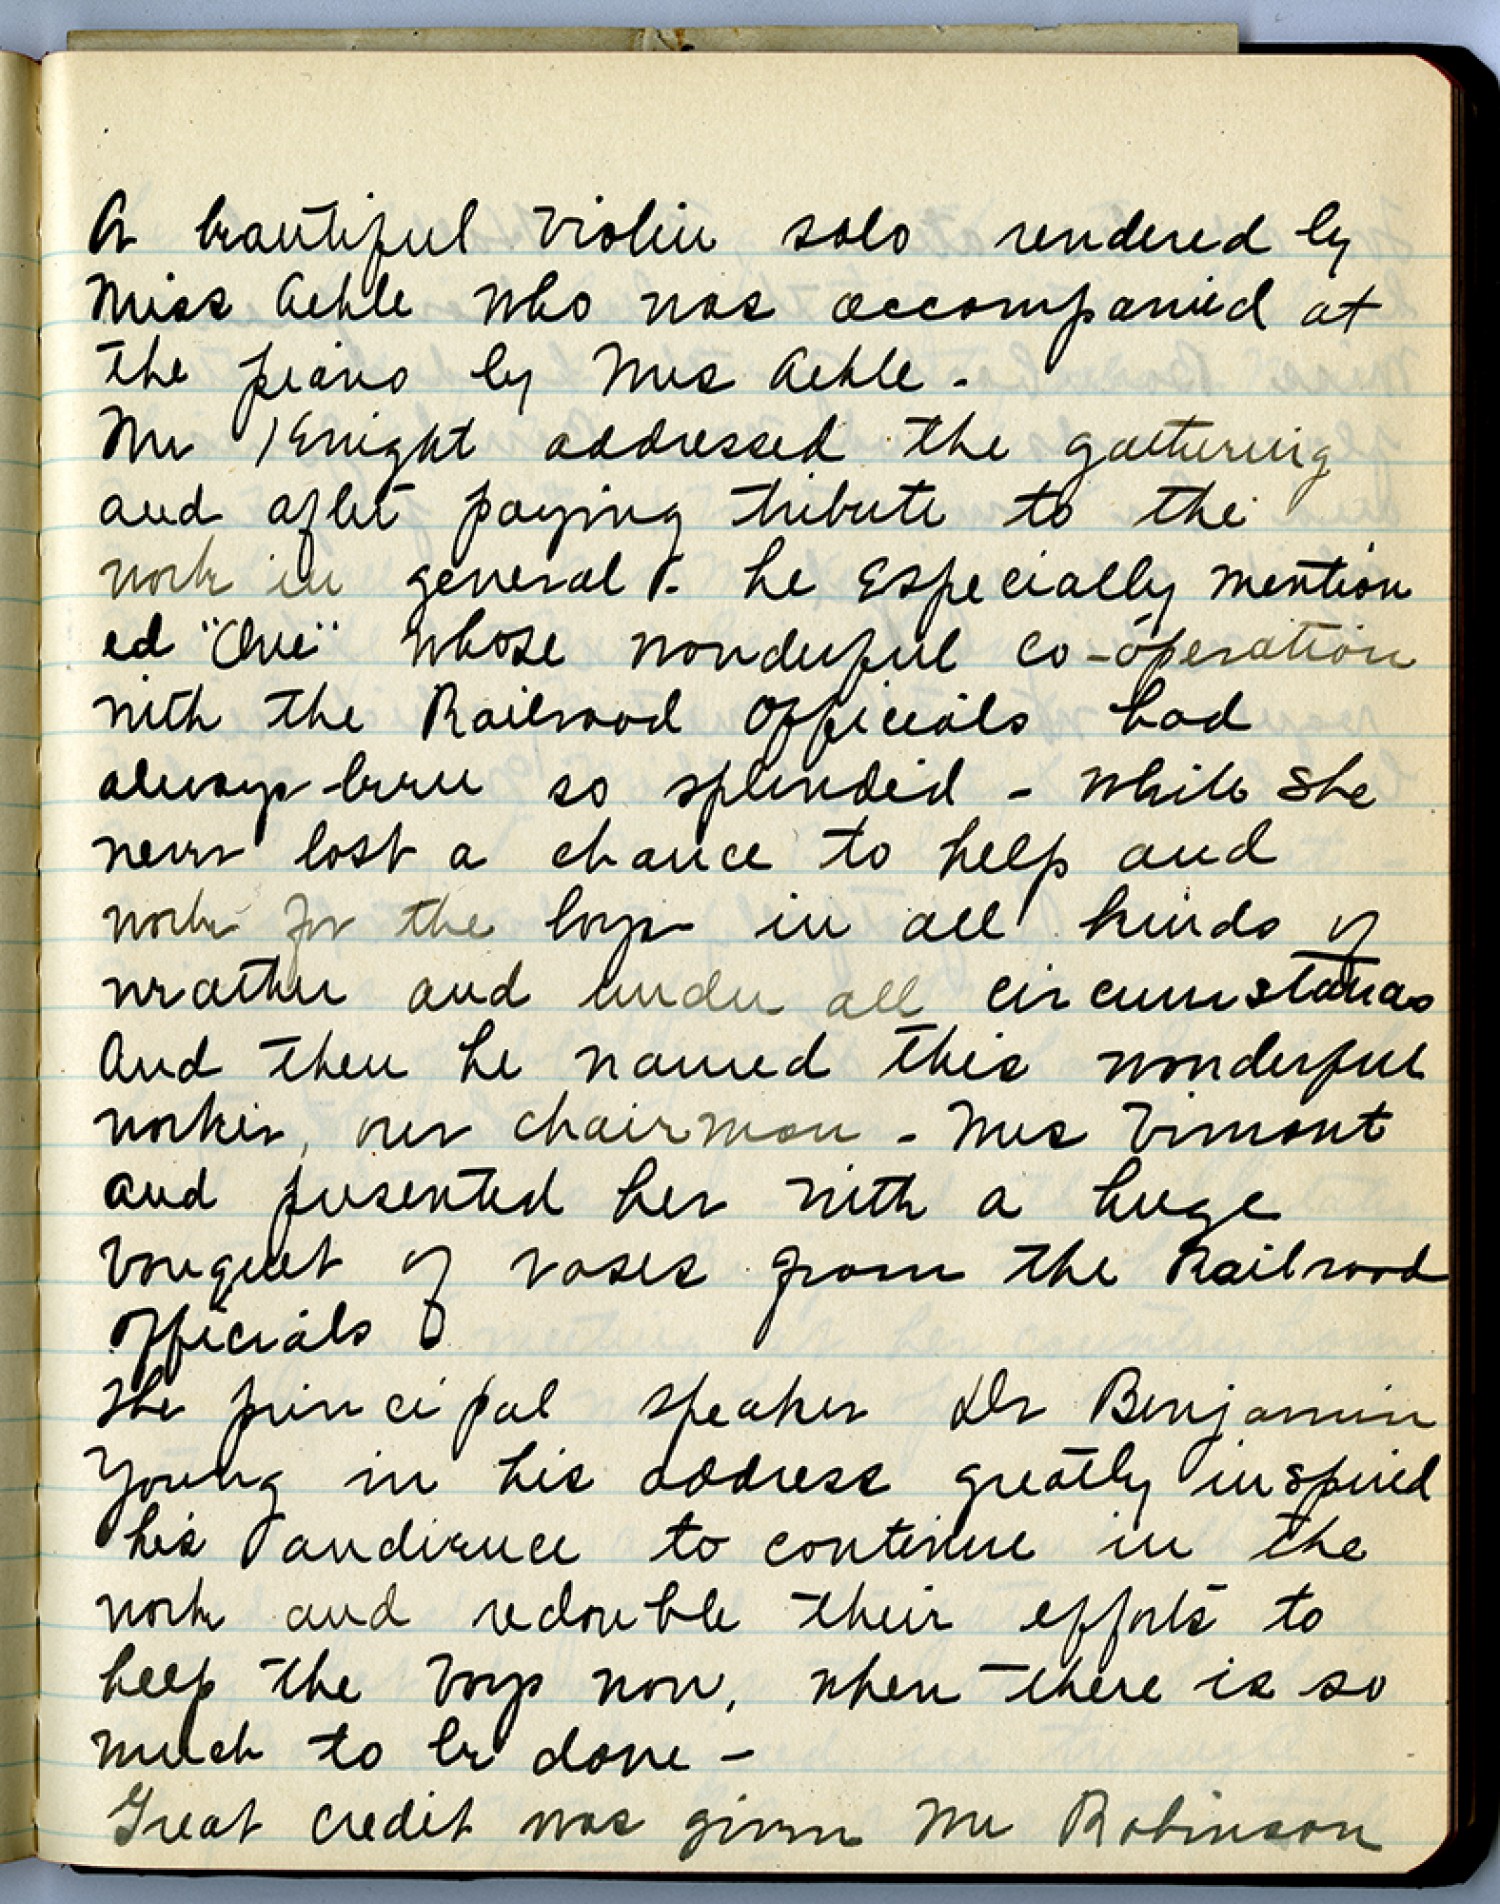 A beautiful violin solo rendered by
Miss Aehle who was accompanied at
the piano by Mrs Aehle -
Mr Knight addressed the gathering
and after paying tribute to the
work in general - he Especially mention
ed "One" whose wonderful co-operation
with the Railroad Officials had
always been so splendid - while she
never lost a chance to help and
work for the boys in all kinds of
weather and under all circumstances
And then he named this wonderful
worker, our chairman - Mrs Vimont
and presented her with a huge
bouquet of roses from the Railroad
Officials
The principal speaker Dr Benjamin
Young in his address greatly inspired
his audience to continue in the
work and redouble their efforts to
help the boys now, when there is so
much to be done -
Great credit was given Mr Robinson